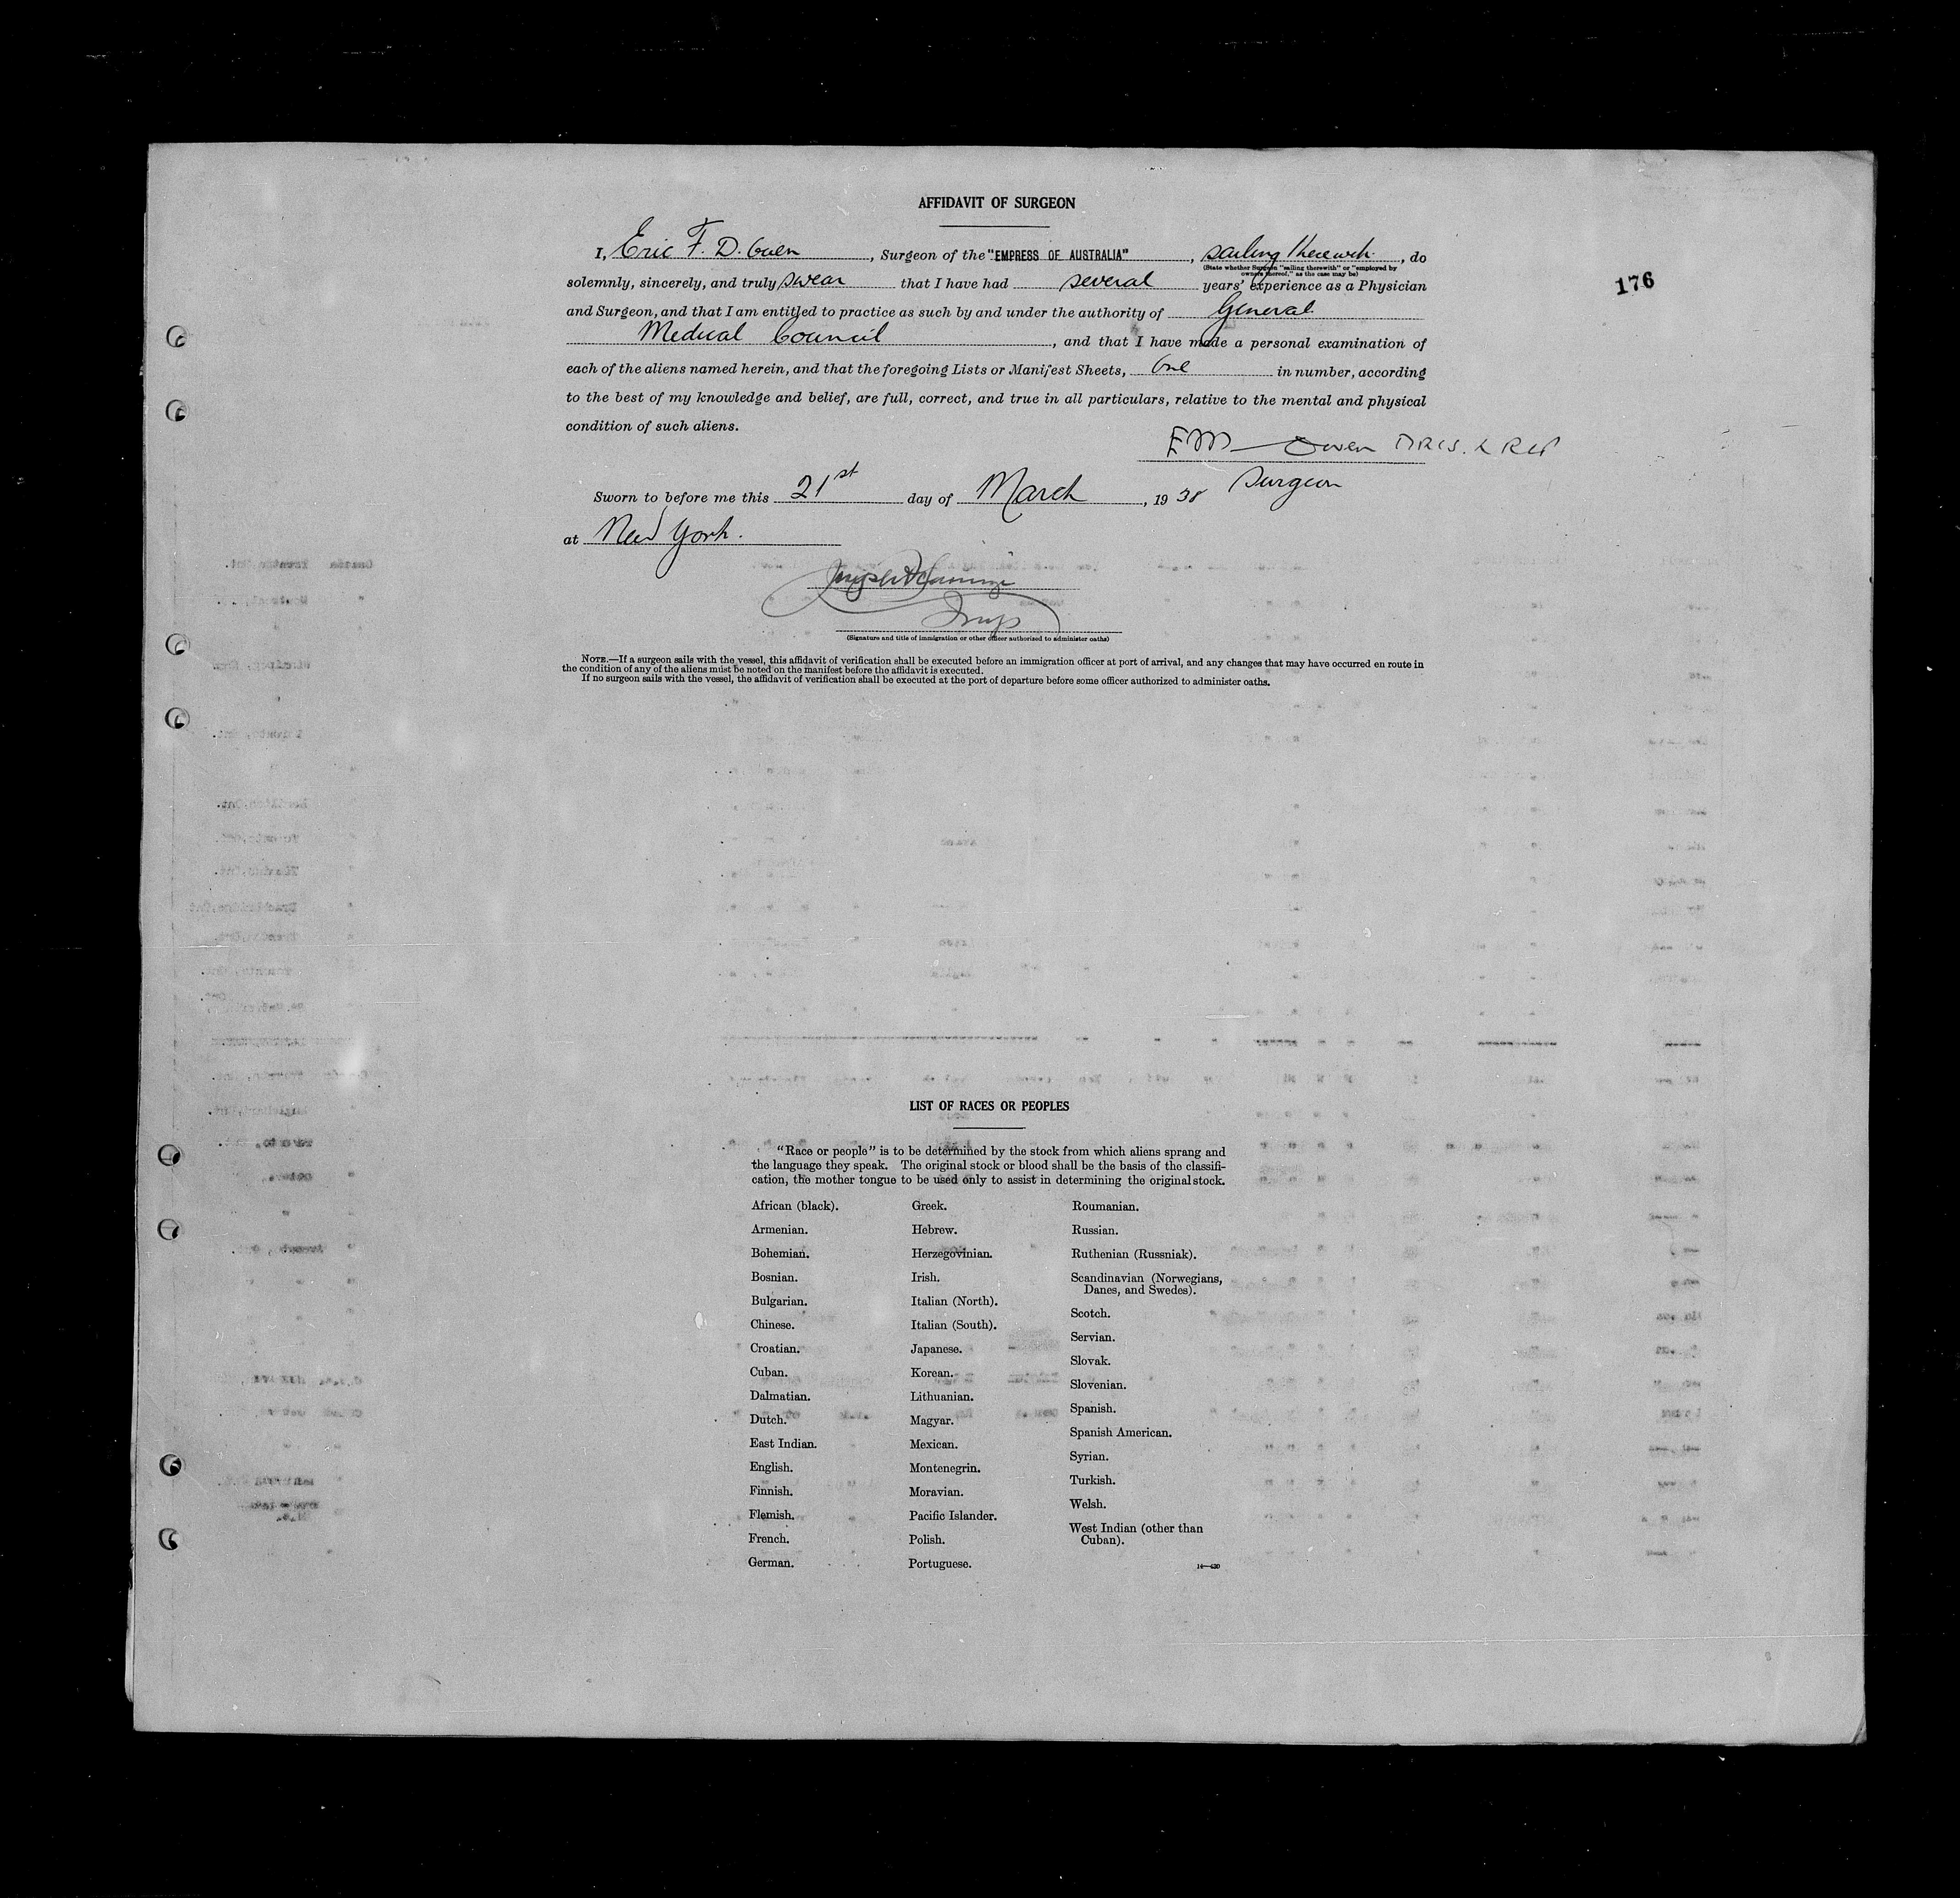 AFFIDAVIT OF SURGEON
I, Eric F. D. Owen, Surgeon of the "EMPRESS OF AUSTRALIA", sailing therewith, do
(State whether Surgeon "sailing therewith" or "employed by
owners thereof," as the case may be)
176
solemnly, sincerely, and truly swear that I have had several years' experience as a Physician
and Surgeon, and that I am entitled to practice as such by and under the authority of General
Medical Council, and that I have made a personal examination of
each of the aliens named herein, and that the foregoing Lists or Manifest Sheets, One in number, according
to the best of my knowledge and belief, are full, correct, and true in all particulars, relative to the mental and physical
condition of such aliens.
Owen
Sworn to before me this 21st day of March, 1938 Surgeon
at New York.
Insp
(Signature and title of immigration or other officer authorized to administer oaths)
NOTE.—If a surgeon sails with the vessel, this affidavit of verification shall be executed before an immigration officer at port of arrival, and any changes that may have occurred en route in
the condition of any of the aliens must be noted on the manifest before the affidavit is executed.
If no surgeon sails with the vessel, the affidavit of verification shall be executed at the port of departure before some officer authorized to administer oaths.
LIST OF RACES OR PEOPLES
"Race or people" is to be determined by the stock from which aliens sprang and
the language they speak. The original stock or blood shall be the basis of the classifi-
cation, the mother tongue to be used only to assist in determining the original stock.
African (black).
Armenian.
Bohemian.
Bosnian.
Bulgarian.
Chinese.
Croatian.
Cuban.
Dalmatian.
Dutch.
East Indian.
English.
Finnish.
Flemish.
French.
German.
Greek.
Hebrew.
Herzegovinian.
Irish.
Italian (North).
Italian (South).
Japanese.
Korean.
Lithuanian.
Magyar.
Mexican.
Montenegrin.
Moravian.
Pacific Islander.
Polish.
Portuguese.
Roumanian.
Russian.
Ruthenian (Russniak).
Scandinavian (Norwegians,
Danes, and Swedes).
Scotch.
Servian.
Slovak.
Slovenian.
Spanish.
Spanish American.
Syrian.
Turkish.
Welsh.
West Indian (other than
Cuban).